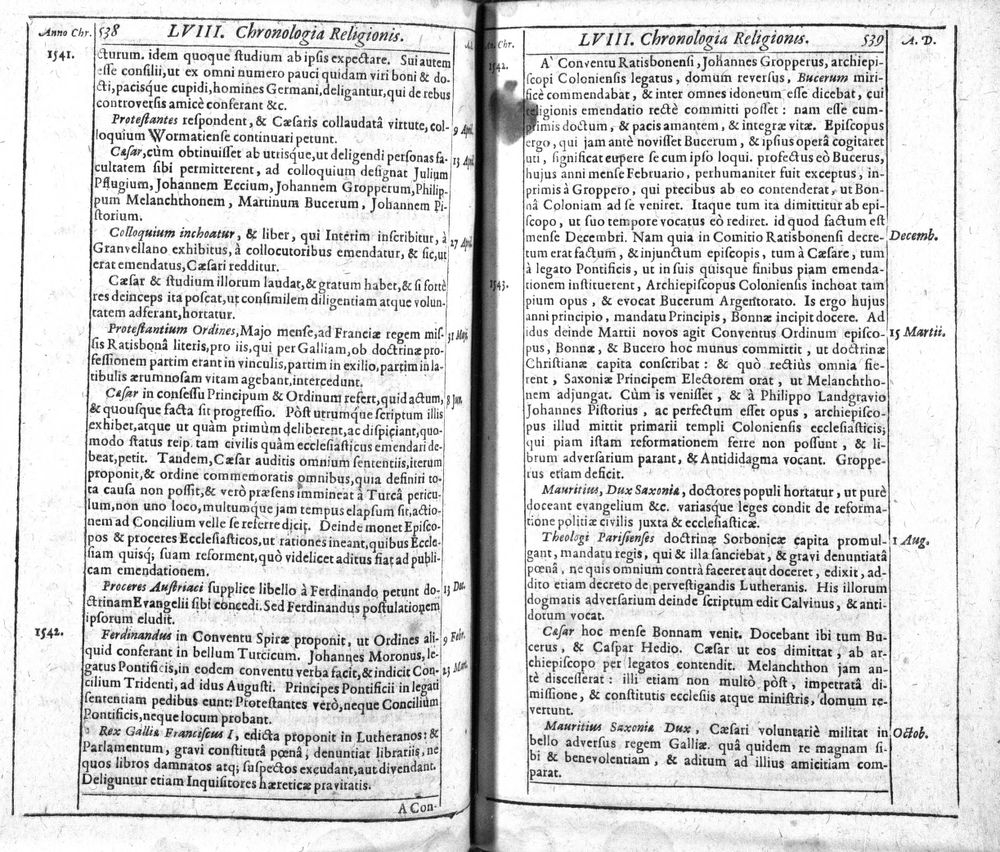 Anno Chr. 538 LVIII. Chronologia Religionis.
1541. cturum. idem quoque studium ab ipsis expectare. Sui autem
esse consilii, ut ex omni numero pauci quidam viri boni & do-
cti, pacisque cupidi, homines Germani, deligantur, qui de rebus
controversis amicè conferant &c.
Protestantes respondent, & Cæsaris collaudatâ virtute, col- 9 Apr.
loquium Wormatiense continuari petunt.
Cæsar, cùm obtinuisset ab utrisque, ut deligendi personas fa- 13 Apr.
cultatem sibi permitterent, ad colloquium designat Julium
Pflugium, Johannem Eccium, Johannem Gropperum, Philip-
pum Melanchthonem, Martinum Bucerum, Johannem Pi-
storium.
Colloquium inchoatur, & liber, qui Interim inscribitur, à 27 Apr.
Granvellano exhibitus, à collocutoribus emendatur, & sic, ut
erat emendatus, Cæsari redditur.
Cæsar & studium illorum laudat, & gratum habet, & si fortè
res deinceps ita poscat, ut consimilem diligentiam atque volun-
tatem adferant, hortatur.
Protestantium Ordines, Majo mense, ad Franciæ regem mis- 31 Maj.
sis Ratisbonâ literis, pro iis, qui per Galliam, ob doctrinæ pro-
fessionem partim erant in vinculis, partim in exilio, partim in la-
tibulis ærumnosam vitam agebant, intercedunt.
Cæsar in consessu Principum & Ordinum refert, quid actum, 8 Jun.
& quousque facta sit progressio. Pòst utrumque scriptum illis
exhibet, atque ut quàm primùm deliberent, ac dispiciant, quo-
modo status reip. tam civilis quàm ecclesiasticus emendari de-
beat, petit. Tandem, Cæsar auditis omnium sententiis, iterum
proponit, & ordine commemoratis omnibus, quia definiri to-
ta causa non possit, & verò præsens immineat à Turcâ pericu-
lum, non uno loco, multumque jam tempus elapsum sit, actio-
nem ad Concilium velle se referre dicit. Deinde monet Episco-
pos & proceres Ecclesiasticos, ut rationes ineant, quibus Eccle-
siam quisq; suam reforment, quò videlicet aditus fiat ad publi-
cam emendationem.
Proceres Austriaci supplice libello à Ferdinando petunt do- 13 Dec.
ctrinam Evangelii sibi concedi. Sed Ferdinandus postulationem
ipsorum eludit.
1542. Ferdinandus in Conventu Spiræ proponit, ut Ordines ali- 9 Febr.
quid conferant in bellum Turcicum. Johannes Moronus, le-
gatus Pontificis, in eodem conventu verba facit, & indicit Con- 23 Mar.
cilium Tridenti, ad idus Augusti. Principes Pontificii in legati
sententiam pedibus eunt: Protestantes verò, neque Concilium
Pontificis, neque locum probant.
Rex Galliæ Franciscus I, edicta proponit in Lutheranos: &
Parlamentum, gravi constitutâ pœnâ, denuntiat librariis, ne
quos libros damnatos atq; suspectos excudant, aut divendant.
Deliguntur etiam Inquisitores hæreticæ pravitatis.
A Con-
An. Chr. LVIII. Chronologia Religionis. 539 A. D.
1542. A Conventu Ratisbonensi, Johannes Gropperus, archiepi-
scopi Coloniensis legatus, domum reversus, Bucerum miri-
ficè commendabat, & inter omnes idoneum esse dicebat, cui
religionis emendatio rectè committi posset: nam esse cum-
primis doctum, & pacis amantem, & integræ vitæ. Episcopus
ergo, qui jam antè novisset Bucerum, & ipsius operâ cogitaret
uti, significat cupere se cum ipso loqui. profectus eò Bucerus,
hujus anni mense Februario, perhumaniter fuit exceptus, in-
primis à Groppero, qui precibus ab eo contenderat, ut Bon-
nâ Coloniam ad se veniret. Itaque tum ita dimittitur ab epi-
scopo, ut suo tempore vocatus eò rediret. id quod factum est
mense Decembri. Nam quia in Comitio Ratisbonensi decre- Decemb.
tum erat factum, & injunctum episcopis, tum à Cæsare, tum
à legato Pontificis, ut in suis quisque finibus piam emenda-
1543. tionem instituerent, Archiepiscopus Coloniensis inchoat tam
pium opus, & evocat Bucerum Argentorato. Is ergo hujus
anni principio, mandatu Principis, Bonnæ incipit docere. Ad
idus deinde Martii novos agit Conventus Ordinum episco- 15 Martii.
pus, Bonnæ, & Bucero hoc munus committit, ut doctrinæ
Christianæ capita conscribat: & quò rectiùs omnia fie-
rent, Saxoniæ Principem Electorem orat, ut Melanchtho-
nem adjungat. Cùm is venisset, & à Philippo Landgravio
Johannes Pistorius, ac perfectum esset opus, archiepisco-
pus illud mittit primarii templi Coloniensis ecclesiasticis;
qui piam istam reformationem ferre non possunt, & li-
brum adversarium parant, & Antididagma vocant. Groppe-
rus etiam deficit.
Mauritius, Dux Saxoniæ, doctores populi hortatur, ut purè
doceant evangelium &c. variasque leges condit de reforma-
tione politiæ civilis juxta & ecclesiasticæ.
Theologi Parisienses doctrinæ Sorbonicæ capita promul- 1 Aug.
gant, mandatu regis, qui & illa sanciebat, & gravi denuntiatâ
pœnâ, ne quis omnium contrà faceret aut doceret, edixit, ad-
dito etiam decreto de pervestigandis Lutheranis. His illorum
dogmatis adversarium deinde scriptum edit Calvinus, & anti-
dotum vocat.
Cæsar hoc mense Bonnam venit. Docebant ibi tum Bu-
cerus, & Caspar Hedio. Cæsar ut eos dimittat, ab ar-
chiepiscopo per legatos contendit. Melanchthon jam an-
tè discesserat: illi etiam non multò pòst, impetratâ di-
missione, & constitutis ecclesiis atque ministris, domum re-
vertunt.
Mauritius Saxoniæ Dux, Cæsari voluntariè militat in Octob.
bello adversus regem Galliæ. quâ quidem re magnam si-
bi & benevolentiam, & aditum ad illius amicitiam com-
parat.